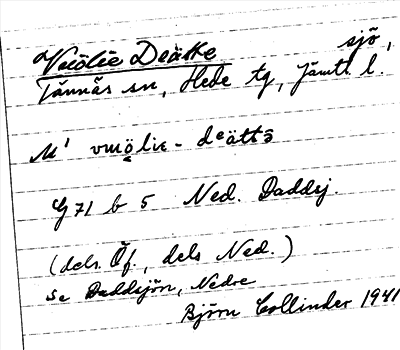 Vuölie Deätte sjö,
Tännäs sn, Hede tg, Jämtl. l.
M' vuo̯lie - deättə̄
G 71 b 5 Ned. Daddsj.
(dels Öf., dels Ned.)
Se Daddsjön, Nedre
Björn Collinder 1941